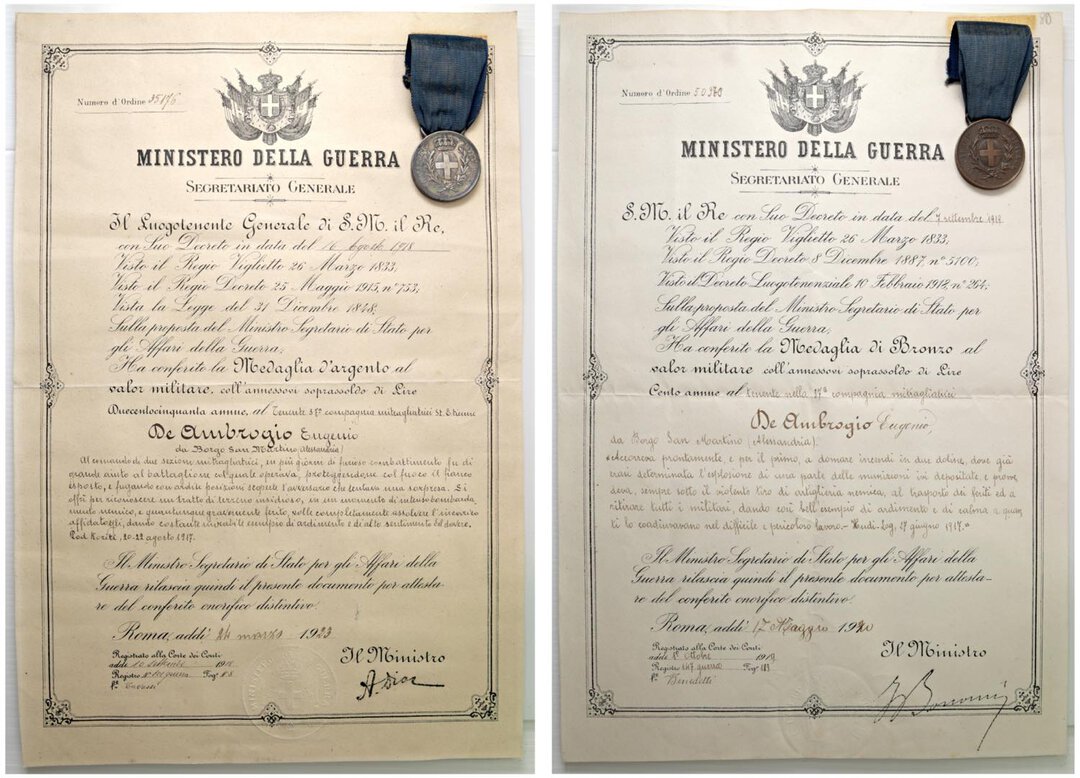 Numero d'Ordine 35176
MINISTERO DELLA GUERRA
SEGRETARIATO GENERALE
Il Luogotenente Generale di S. M. il Re,
con Suo Decreto in data del 16 Agosto 1918
Visto il Regio Viglietto 26 Marzo 1833;
Visto il Regio Decreto 25 Maggio 1915, n° 753;
Vista la Legge del 31 Dicembre 1848,
Sulla proposta del Ministro Segretario di Stato per
gli Affari della Guerra;
Ha conferito la Medaglia d'argento al
valor militare, coll'annessovi soprassoldo di Lire
Duecentocinquanta annue, al Tenente compagnia mitragliatrici St. Etienne
De Ambrogio Eugenio
da Borgo San Martino (Alessandria)
Al comando di due sezioni mitragliatrici, in più giorni di furioso combattimento fu di
grande aiuto al battaglione col quale operava, proteggendone col fuoco il fianco
esposto, e fugando con ardite posizioni seguite l'avversario che tentava una sorpresa. Si
offrì per riconoscere un tratto di terreno insidioso, in un momento di intenso bombarda
mento nemico, e quantunque gravemente ferito, volle completamente assolvere l'incarico
affidatogli, dando costante mirabile esempio di ardimento e di alto sentimento del dovere.
Pod Koriti, 20-22 agosto 1917.
Il Ministro Segretario di Stato per gli Affari della
Guerra rilascia quindi il presente documento per attesta-
re del conferito onorifico distintivo.
Roma, addì 24 marzo 1923
Registrato alla Corte dei Conti
addì 10 settembre 1918
Registro guerra Fog°
f°
Il Ministro
A Diaz
Numero d'Ordine 50370
MINISTERO DELLA GUERRA
SEGRETARIATO GENERALE
S. M. il Re con Suo Decreto in data del 7 settembre 1919
Visto il Regio Viglietto 26 Marzo 1833;
Visto il Regio Decreto 8 Dicembre 1887, n° 5100;
Visto il Decreto Luogotenenziale 10 Febbraio 1918, n° 264;
Sulla proposta del Ministro Segretario di Stato per
gli Affari della Guerra,
Ha conferito la Medaglia di Bronzo al
valor militare coll'annessovi soprassoldo di Lire
Cento annue al tenente nella 37a compagnia mitragliatrici
De Ambrogio Eugenio,
da Borgo San Martino (Alessandria).
«Accorreva prontamente e per il primo, a domare incendi in due doline, dove già
erasi determinata l'esplosione di una parte delle munizioni ivi depositate, e provve
deva, sempre sotto il violento tiro di artiglieria nemica, al trasporto dei feriti ed a
ritirare tutti i militari, dando così bell'esempio di ardimento e di calma a quan
ti lo coadiuvavano nel difficile e pericoloso lavoro.- Hudi-Log, 17 giugno 1917.»
Il Ministro Segretario di Stato per gli Affari della
Guerra rilascia quindi il presente documento per attesta-
re del conferito onorifico distintivo.
Roma, addì 17 Maggio 1920
Registrato alla Corte dei Conti
addì 1° ottobre 1919
Registro 147 guerra Fog°
f° Benedetti
Il Ministro
Bonomi